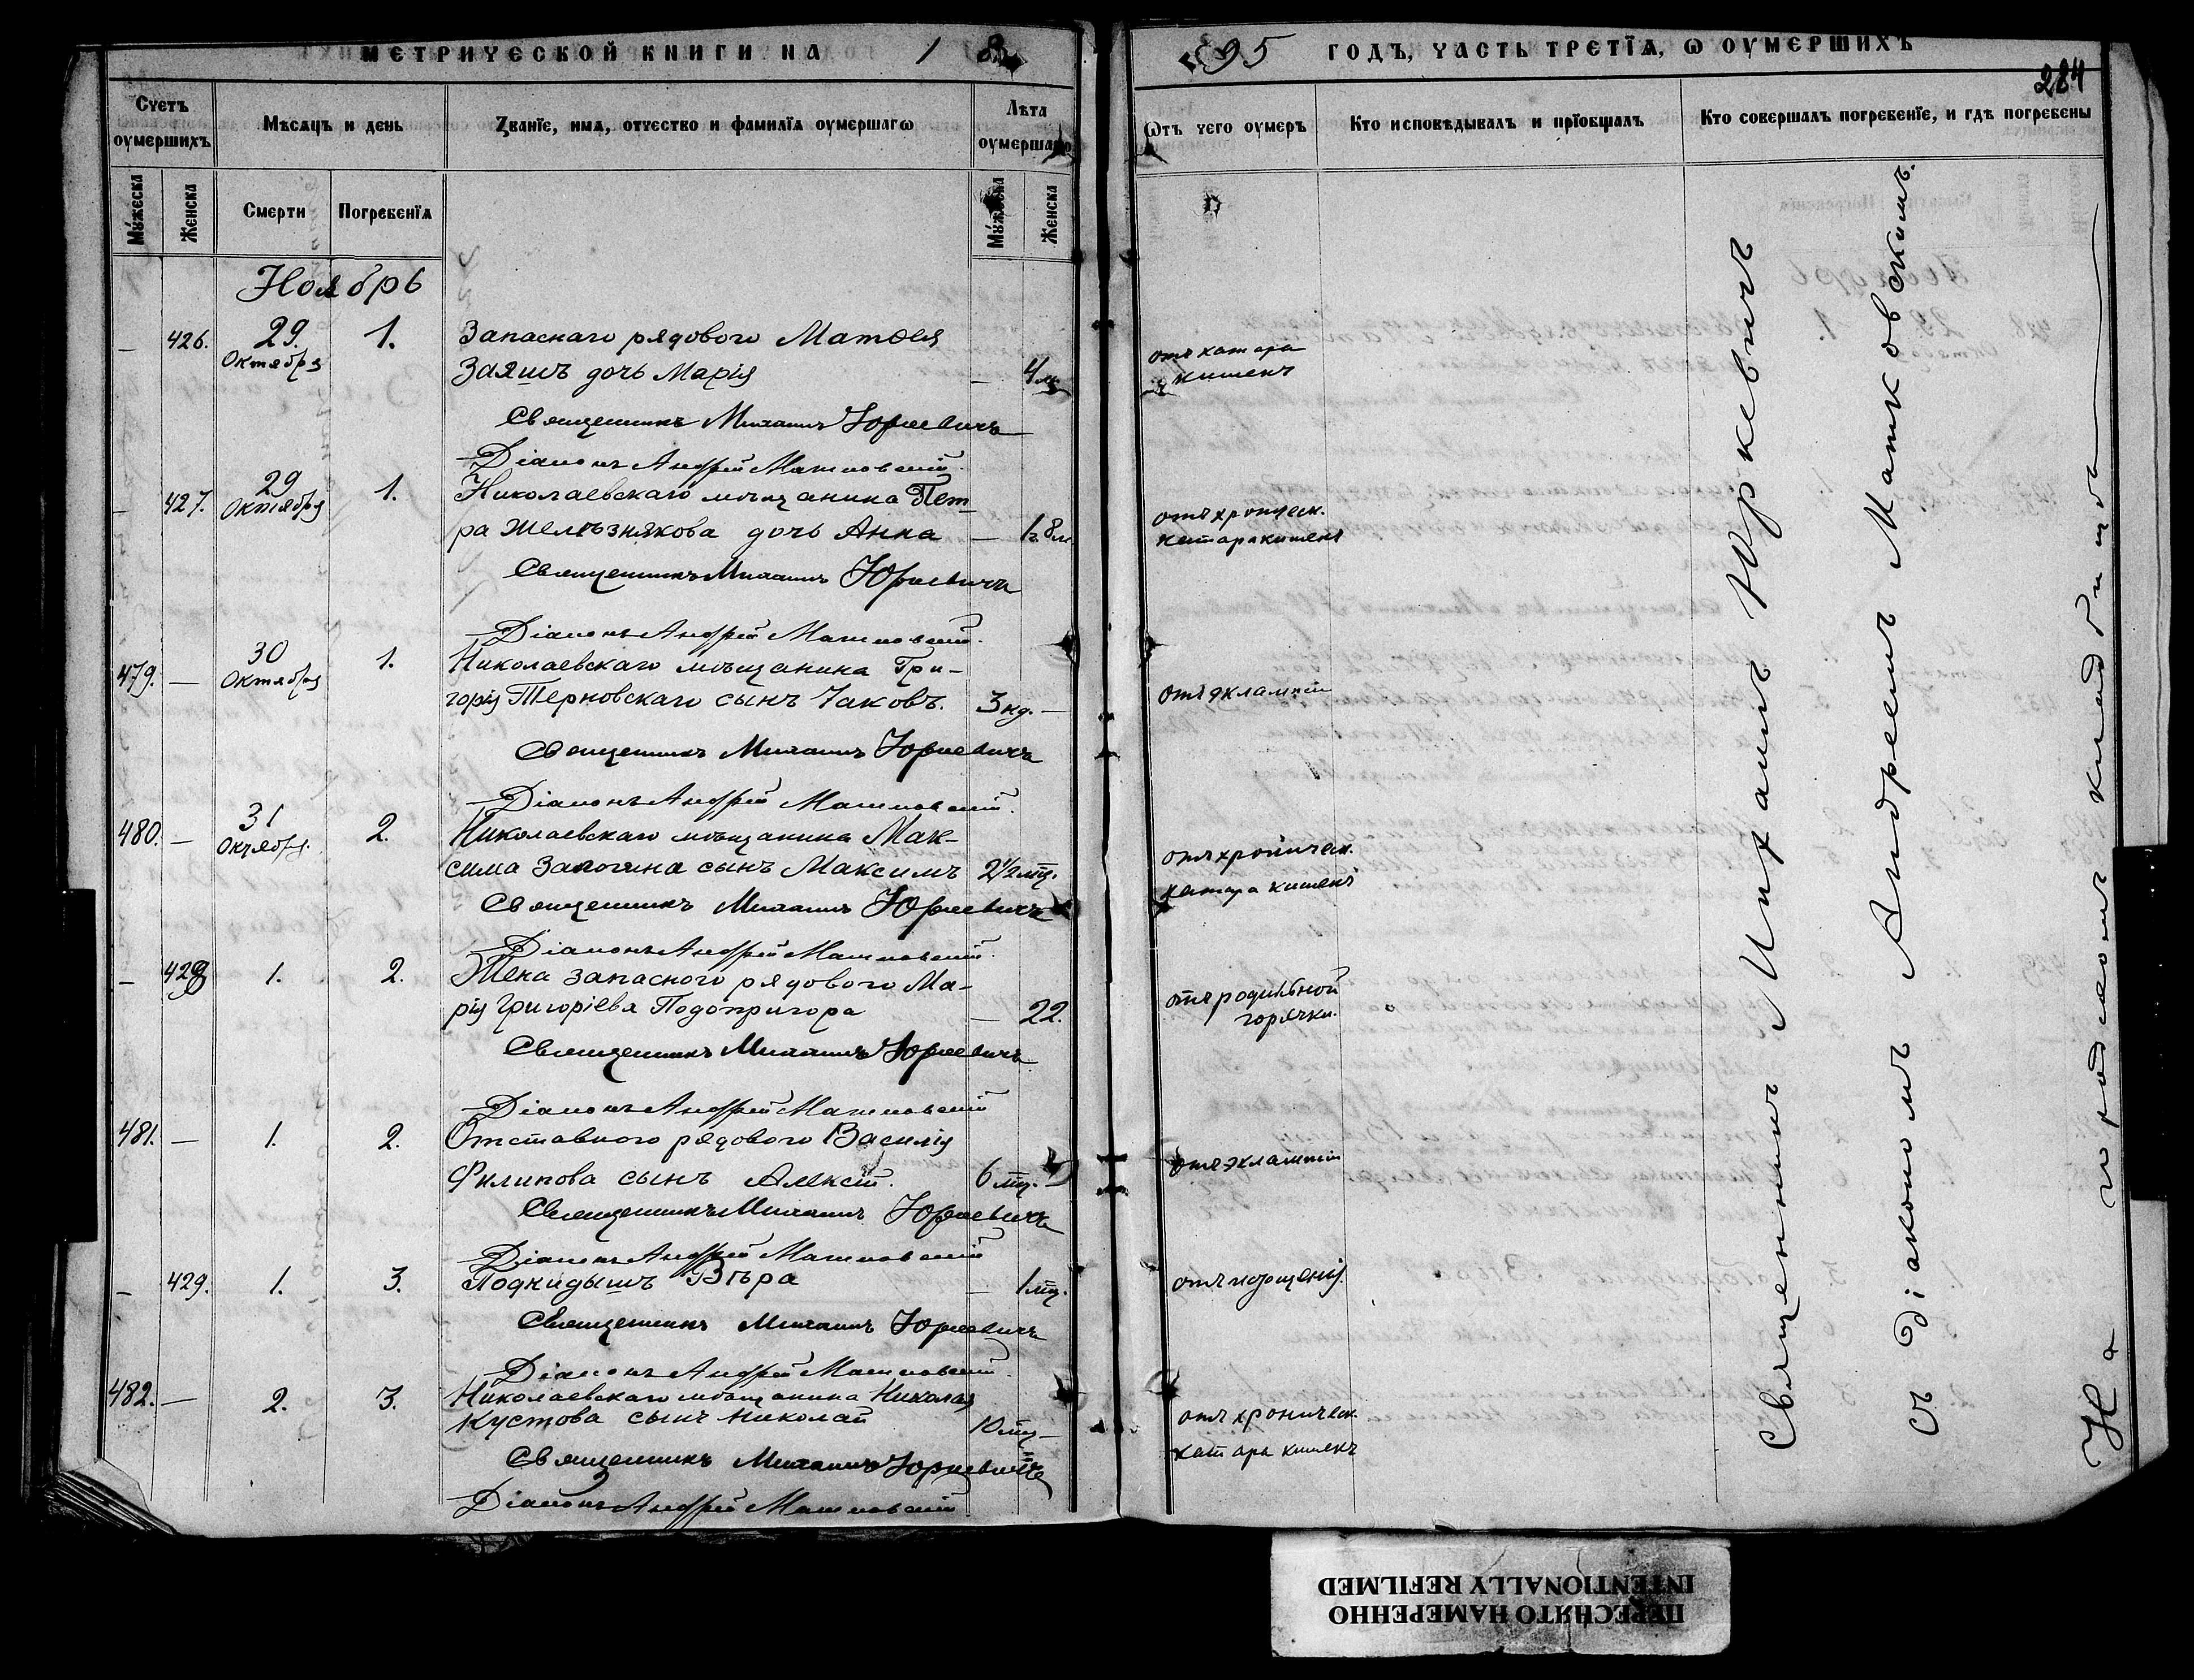 МЕТРИЧЕСКОЙ КНИГИ НА 1895 ГОДЪ, ЧАСТЬ ТРЕТІѦ, Ѡ ОУМЕРШИХЪ
284
Счетъ оумершихъ
Мѣсяцъ и день
Званїе, имѧ, отчество и фамилїѧ оумершагѡ
Лѣта оумершаго
Ѿтъ чего оумеръ
Кто исповѣдывалъ и прїобщалъ
Кто совершалъ погребенїе, и гдѣ погребены
Мꙋжеска
Женска
Смерти
Погребенїѧ
Мꙋжеска
Женска
Ноябрь
— 426. 29. Октября 1. Запаснаго рядового Матѳея
Заяшъ дочь Марія — 4 м.
отъ катара
кишекъ
Священникъ Михаилъ Юркевичъ
Діаконъ Андрей Матковскій.
— 427. 29 Октября 1. Николаевскаго мѣщанина Пет-
ра Желѣзнякова дочь Анна — 1 г. 8 м.
отъ хроническ.
катара кишекъ
Священникъ Михаилъ Юркевичъ
Діаконъ Андрей Матковскій.
479. — 30 Октября 1. Николаевскаго мѣщанина Гри-
горія Терновскаго сынъ Іаковъ. 3 нд. —
отъ эклампсіи
Священникъ Михаилъ Юркевичъ
Діаконъ Андрей Матковскій.
480. — 31 Октября. 2. Николаевскаго мѣщанина Мак-
сима сынъ Максимъ 2½ мц.
отъ хроническ.
катара кишекъ
Священникъ Михаилъ Юркевичъ
Діаконъ Андрей Матковскій.
— 428 1. 2. Жена запасного рядового Ма-
рія Григоріева Подопригора — 22.
отъ родильной
горячки.
Священникъ Михаилъ Юркевичъ
Діаконъ Андрей Матковскій
481. — 1. 2. Отставного рядового Василія
Филипова сынъ Алексій. 6 мц. —
отъ эклампсіи
Священникъ Михаилъ Юркевичъ
Діаконъ Андрей Матковскій
— 429. 1. 3. Подкидышъ Вѣра — 1 мц.
отъ истощенія.
Священникъ Михаилъ Юркевичъ
Діаконъ Андрей Матковскій.
482. — 2. 3. Николаевскаго мѣщанина Николая
Кустова сынъ Николай 10 мц —
отъ хроническ.
катара кишекъ
Священникъ Михаилъ Юркевичъ
Діаконъ Андрей Матковскій
Священникъ Михаилъ Юркевичъ
съ діакономъ Андреемъ Матковскимъ.
На городскомъ кладбищѣ
ПЕРЕСНЯТО НАМЕРЕННО
INTENTIONALLY REFILMED